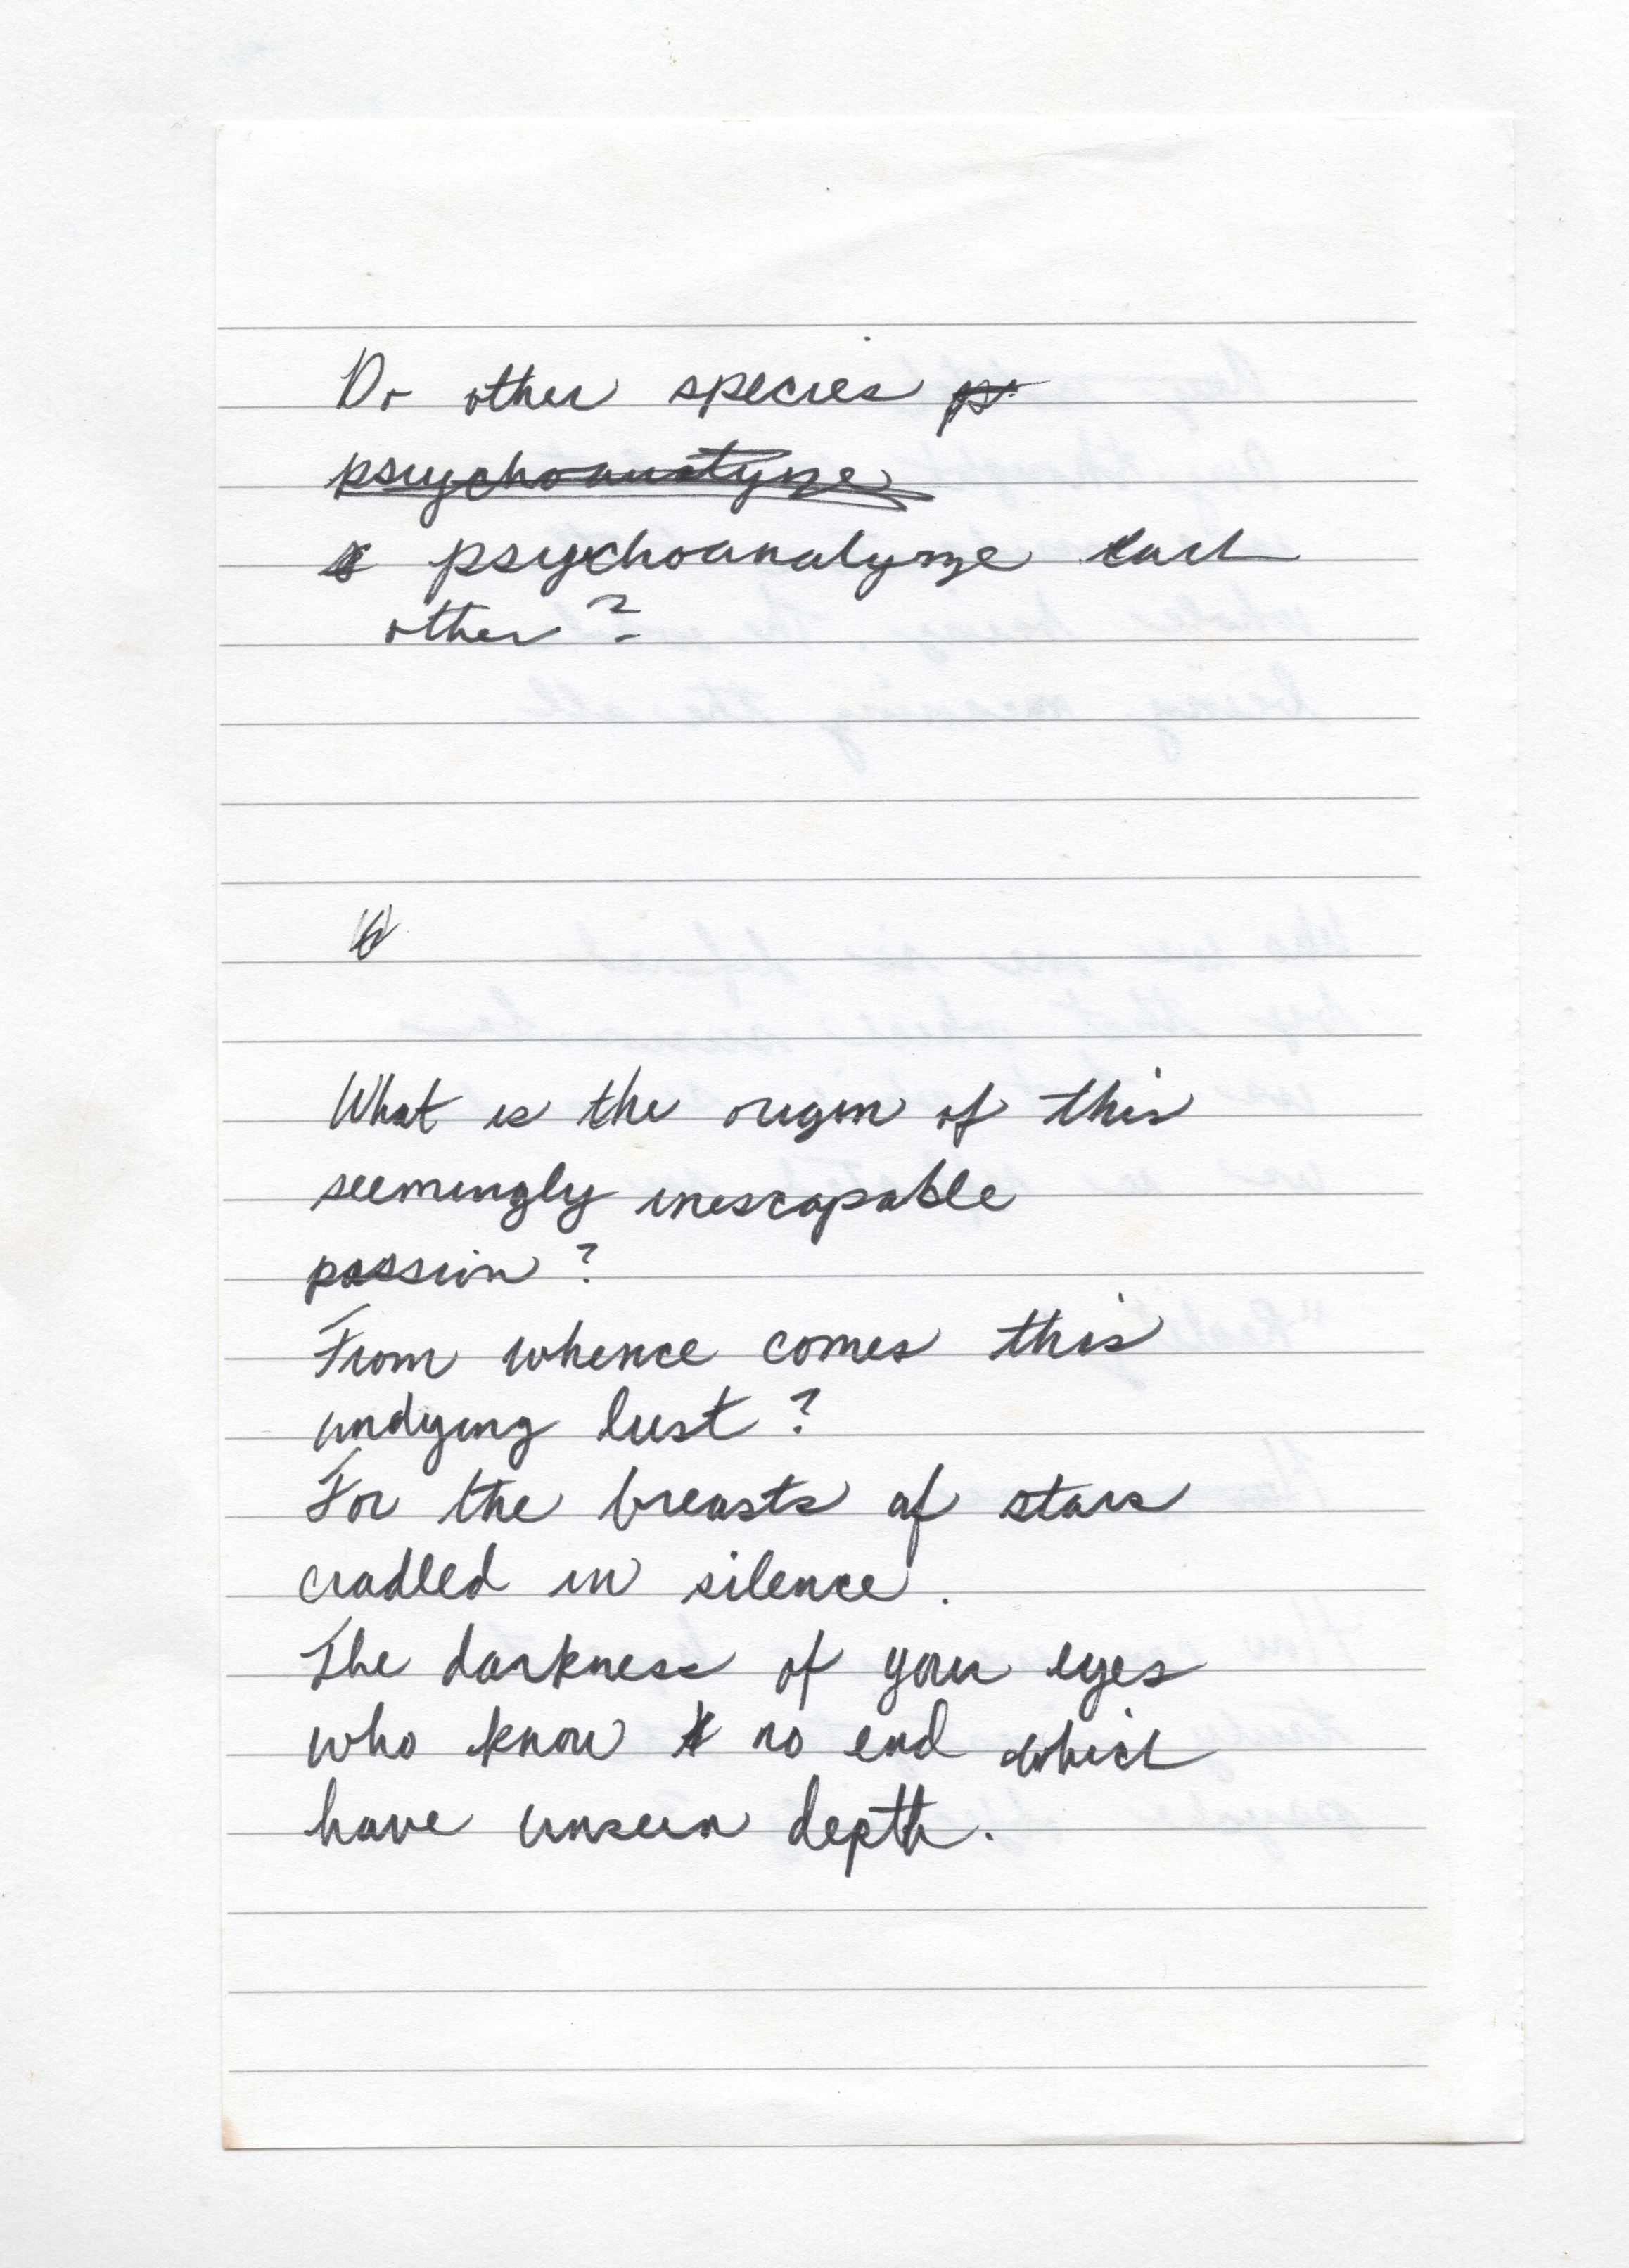 Do other species ps
psychoanalyze
psychoanalyze each
other?
W
What is the origin of this
seemingly inescapable
passion?
From whence comes this
undying lust?
For the breasts of stars
cradled in silence.
The darkness of your eyes
who know no end which
have unseen depth.